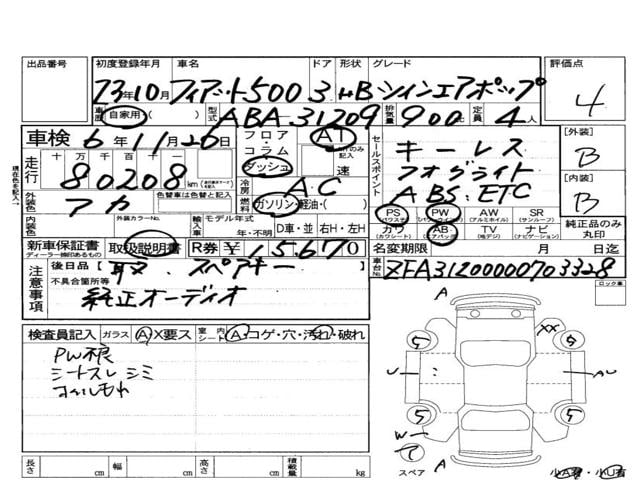 出品番号 初度登録年月 車名 ドア 形状 グレード 評価点
23年10月 フィアット500 3 HB ツインエアポップ 4
車歴 自家用( ) 型式 ABA-31209 排気量 900 cc 定員 4人
車検 6年11月26日 フロア コラム ダッシュ AT 速
走行 十万千百十一 80208 km
外装色 アカ 色替車は色替え前( )
内装色 外装カラーNo. 冷房 AC
燃料 ガソリン・軽油・( )
輸入車 モデル年式 年・不明 D車・並 右H・左H
セールスポイント キーレス
フォグライト
ABS・ETC
PS PW AW SR
カワ AB TV ナビ 純正品のみ丸印
[外装] B
[内装] B
新車保証書 取扱説明書 R券 ¥15,670
ディーラー捺印あるもの
名変期限 月 日迄
車台No. ZFA3120000J703328
注意事項 後日品 取、スペアキー
不具合箇所等
純正オーディオ
ロック車
検査員記入 ガラス A X要ス 室内シート A・コゲ・穴・汚れ・破れ
PW不良
シートスレ シミ
長さ cm 幅 cm 高さ cm 積載量 kg
A
XX
5 5
U AU
5 5
W
スペア
A
小A有・小U有